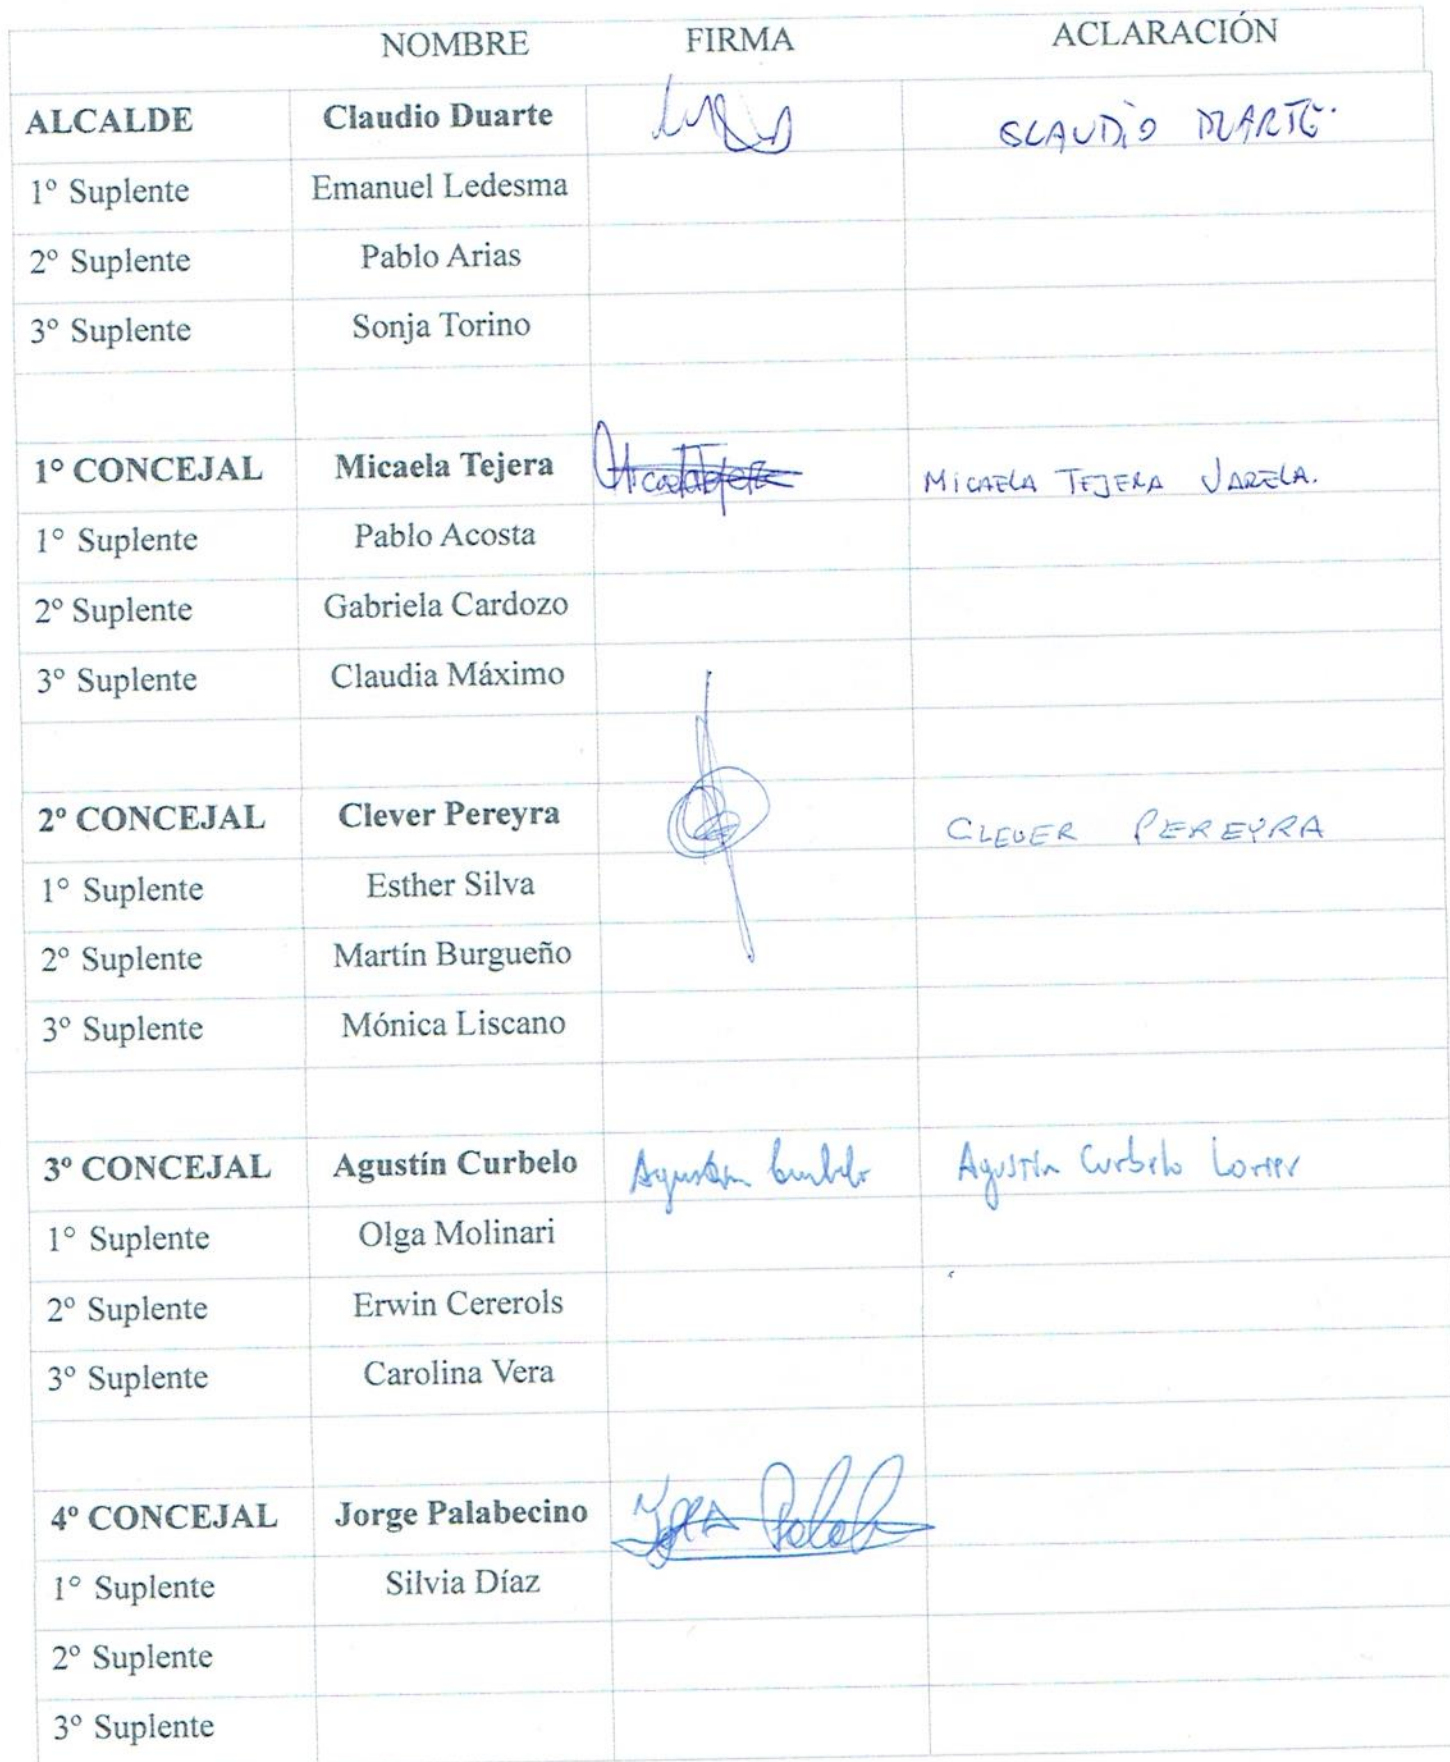 NOMBRE FIRMA ACLARACIÓN
ALCALDE Claudio Duarte CLAUDIO DUARTE.
1º Suplente Emanuel Ledesma
2º Suplente Pablo Arias
3º Suplente Sonja Torino
1º CONCEJAL Micaela Tejera Micaela Tejera MICAELA TEJERA VARELA.
1º Suplente Pablo Acosta
2º Suplente Gabriela Cardozo
3º Suplente Claudia Máximo
2º CONCEJAL Clever Pereyra CLEVER PEREYRA
1º Suplente Esther Silva
2º Suplente Martín Burgueño
3º Suplente Mónica Liscano
3º CONCEJAL Agustín Curbelo Agustín Curbelo Agustín Curbelo
1º Suplente Olga Molinari
2º Suplente Erwin Cererols
3º Suplente Carolina Vera
4º CONCEJAL Jorge Palabecino
1º Suplente Silvia Díaz
2º Suplente
3º Suplente